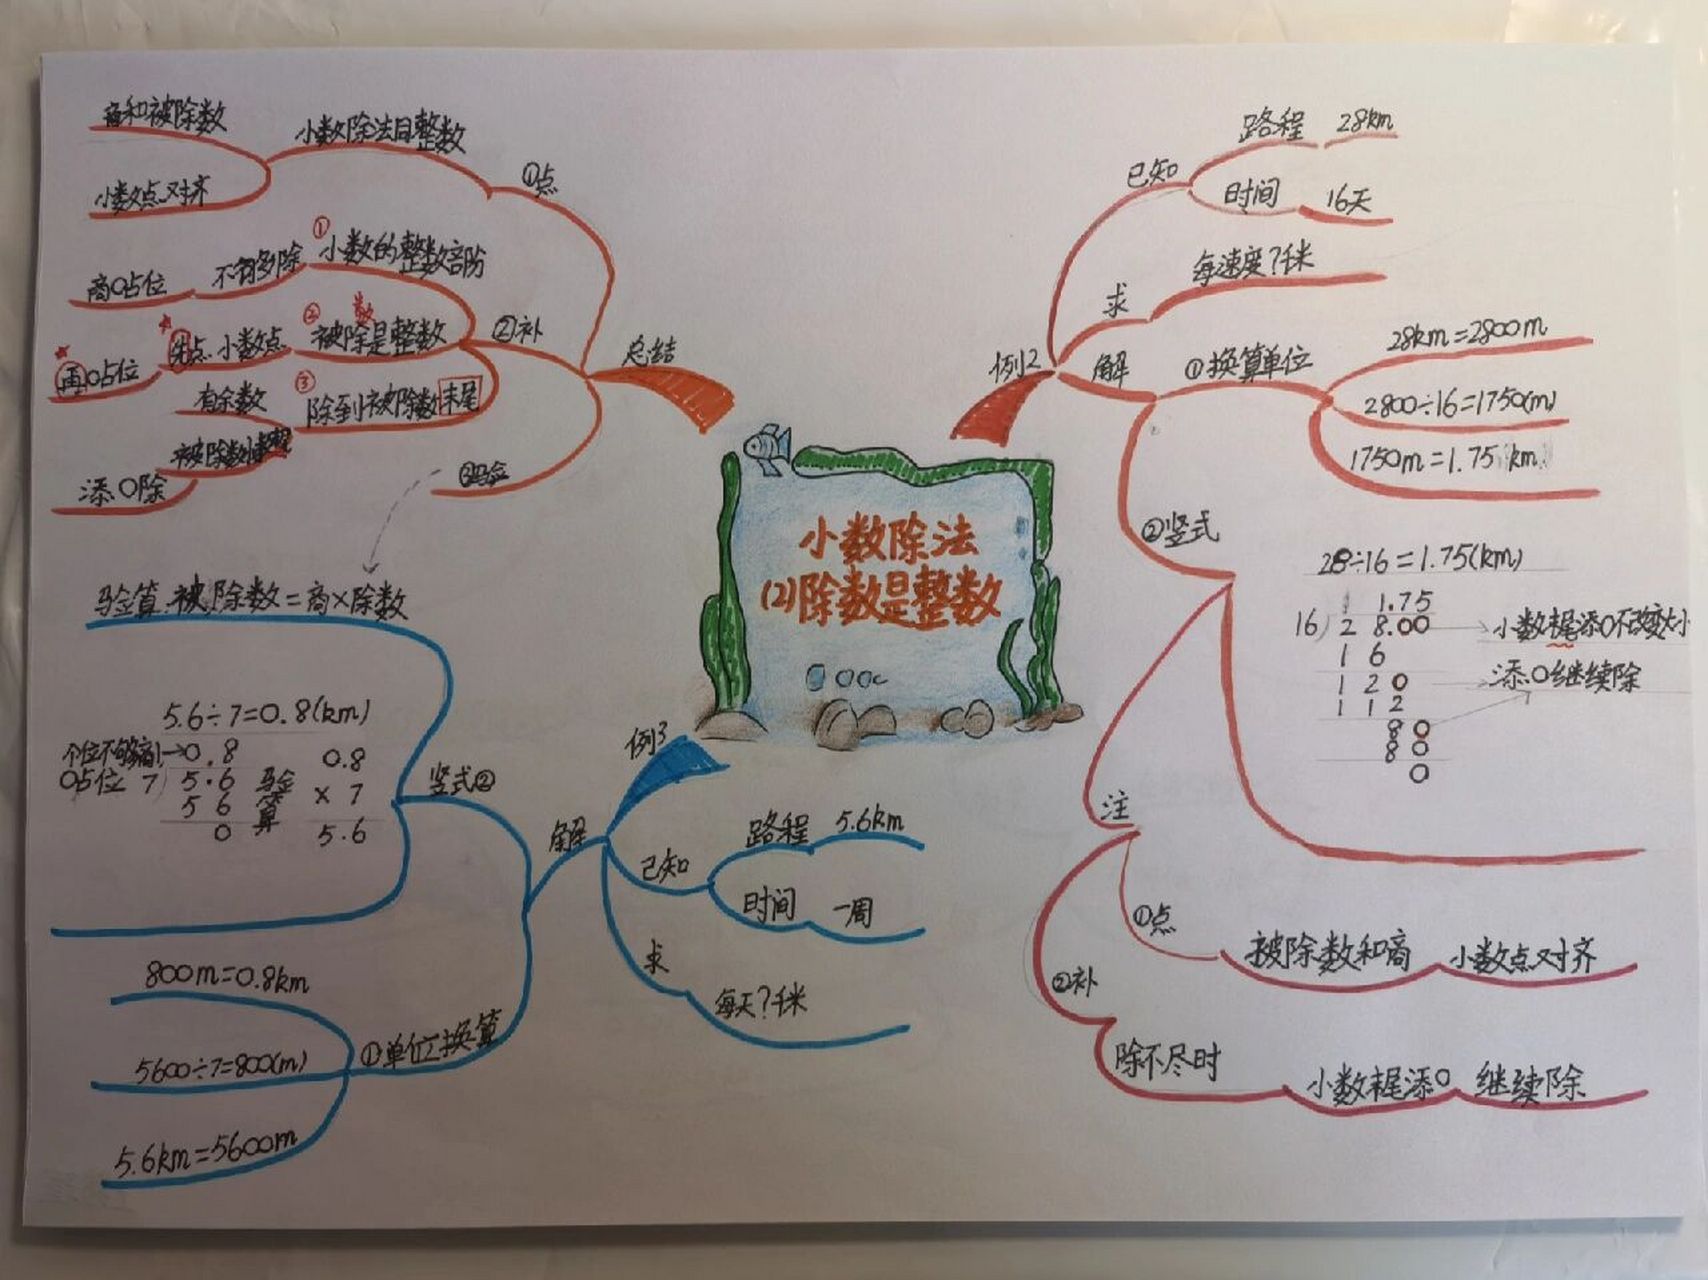 小数除法
(2)除数是整数
例2
已知
路程 28km
时间 16天
求
每速度?千米
解
①换算单位
28km=2800m
2800÷16=1750(m)
1750m=1.75km
②竖式
28÷16=1.75(km)
1.75
16 28.00
小数末尾添0不改变大小
16
120
添0继续除
112
80
80
0
注
①点
被除数和商 小数点对齐
②补
除不尽时
小数末尾添0 继续除
例3
已知
路程 5.6km
时间 一周
求
每天?千米
解
①单位换算
5.6km=5600m
5600÷7=800(m)
800m=0.8km
竖式②
5.6÷7=0.8(km)
个位不够商1→0.8
0占位 7 5.6
56
0
验算
0.8
×7
5.6
验算:被除数=商×除数
总结
①点
小数除法目整数
商和被除数
小数点对齐
②补
①小数的整数部份
不够除
商0占位
②被除数是整数
先点小数点
再0占位
③除到被除数末尾
有余数
添0除
③验算